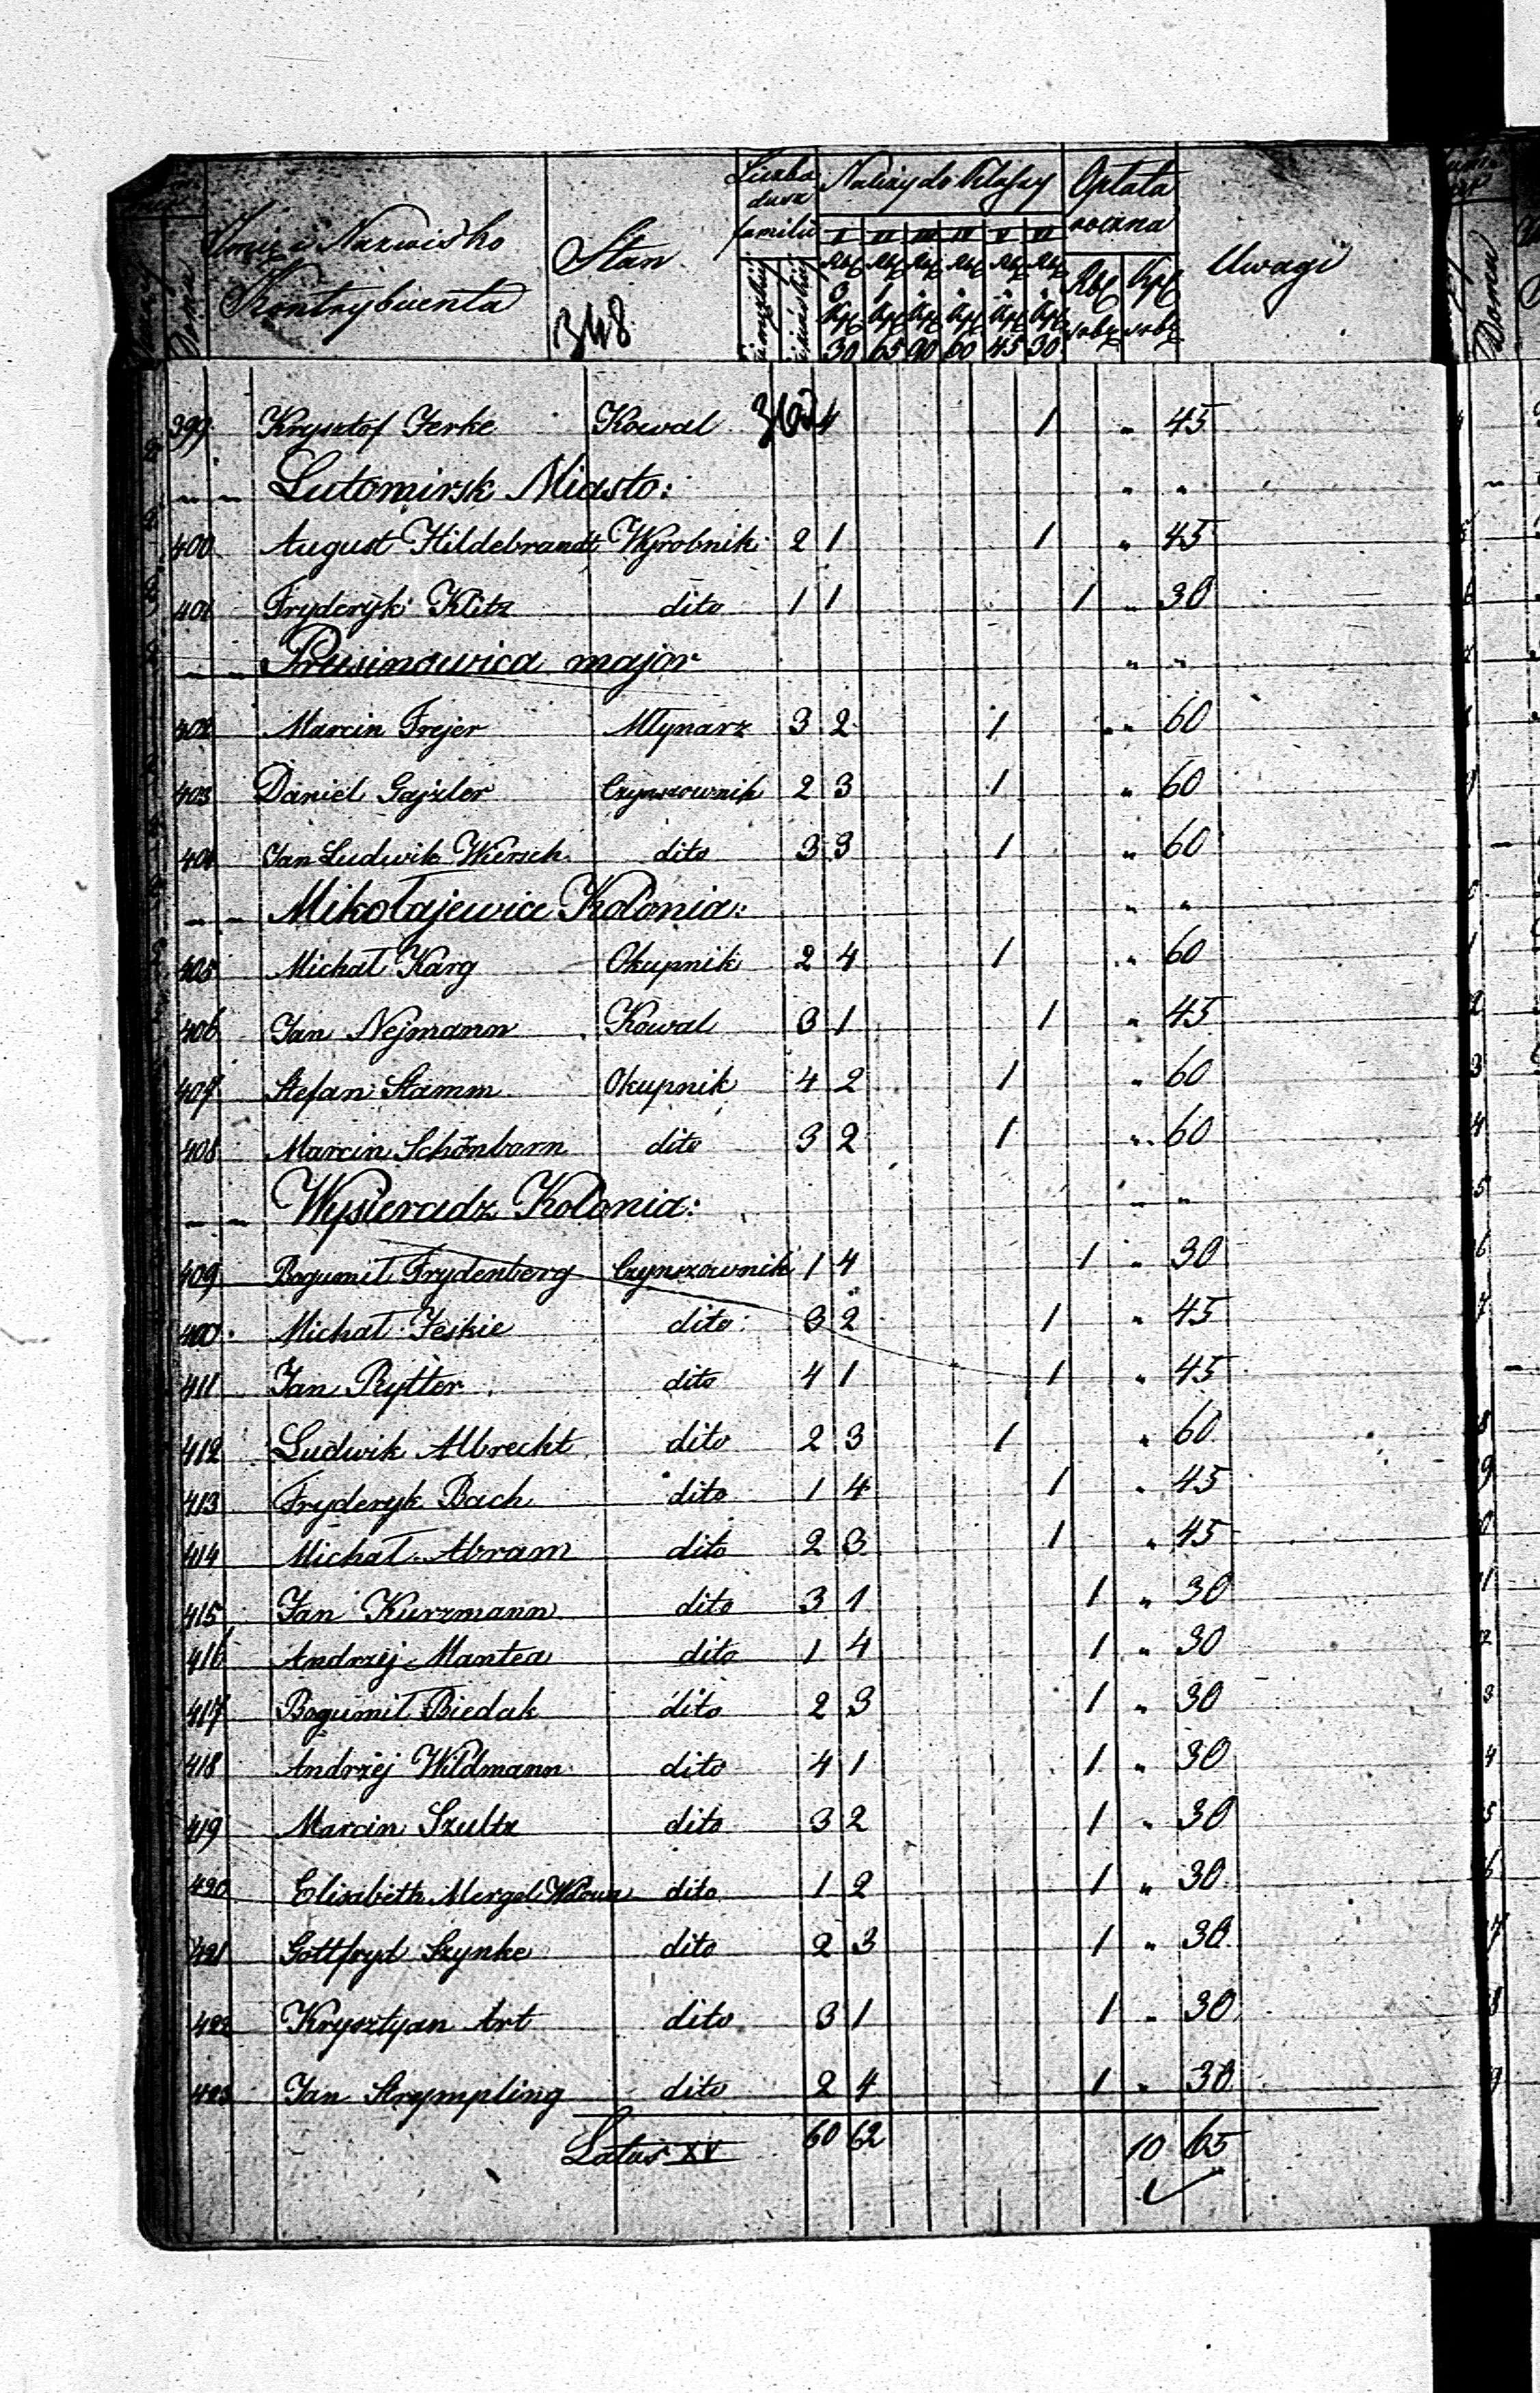 Imię i Nazwisko Kontrybuenta
Stan
348
Liczba dusz familii
Należy do Klassy
Opłata roczna
Uwagi
Domu
męzkiéj żeńskiéj
I II III IV V VI
Rbl Rbl Rbl Rbl Rbl Rbl
3 1 " " " "
kp kp kp kp kp kp
30 65 90 60 45 30
Rbl srbr Kp srbr
399 Krysztof Jerke Kowal 3 4 1 " 45
" " Lutomirsk Miasto: " "
400 August Hildebrandt Wyrobnik 2 1 1 " 45
401 Fryderyk Klitz dito 1 1 1 " 30
" " Prusinowica major " "
402 Marcin Frejer Młynarz 3 2 1 " 60
403 Daniel Gajzler Czynszownik 2 3 1 " 60
404 Jan Ludwik Wiersch dito 3 3 1 " 60
" " Mikołajewice Kolonia: " "
405 Michał Karg Okupnik 2 4 1 " 60
406 Jan Nejmann Kowal 3 1 1 " 45
407 Stefan Stamm Okupnik 4 2 1 " 60
408 Marcin Schönborn dito 3 2 1 " 60
" " Wysieradz Kolonia: " "
409 Bogumił Frydenberg Czynszownik 1 4 1 " 30
400 Michał Jeskie dito 3 2 1 " 45
411 Jan Rytter dito 4 1 1 " 45
412 Ludwik Albrecht dito 2 3 1 " 60
413 Fryderyk Bach dito 1 4 1 " 45
414 Michał Abram dito 2 3 1 " 45
415 Jan Kurzmann dito 3 1 1 " 30
416 Andrzéj Mantea dito 1 4 1 " 30
417 Bogumił Biedak dito 2 3 1 " 30
418 Andrzéj Wildmann dito 4 1 1 " 30
419 Marcin Szultz dito 3 2 1 " 30
420 Elisabeth Mergel Wdowa dito 1 2 1 " 30
421 Gottfryd Szynke dito 2 3 1 " 30
422 Krysztyan Art dito 3 1 1 " 30
423 Jan Strympling dito 2 4 1 " 30
Latus XV 60 62 10 65